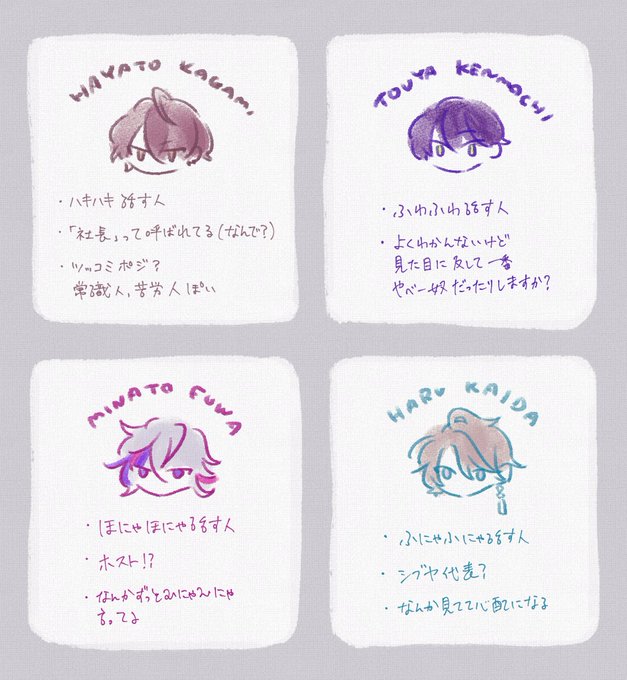 HAYATO KAGAMI
・ハキハキ話す人
・「社長」って呼ばれてる(なんで?)
・ツッコミポジ?
常識人、苦労人ぽい
TOUYA KENMOCHI
・ふわふわ話す人
・よくわかんないけど
見た目に反して一番
やべー奴だったりしますか?
MINATO FUWA
・ほにゃほにゃ話す人
・ホスト!?
・なんかずっとみにゃみにゃ
言ってる
HARU KAIDA
・ふにゃふにゃ話す人
・シブヤ代表?
・なんか見てて心配になる